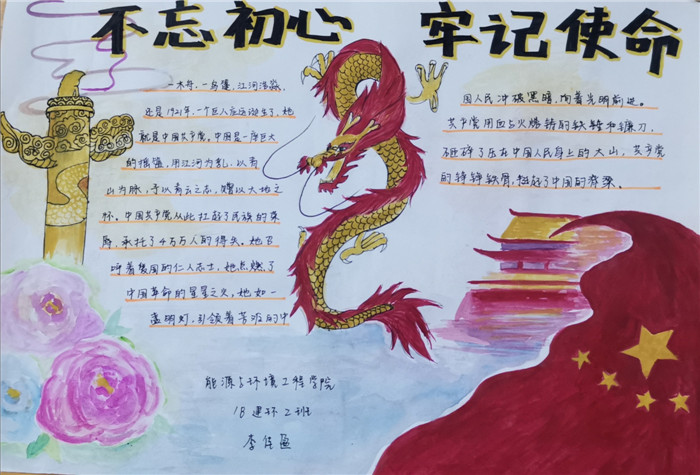 不忘初心 牢记使命
一木舟,一乌篷,江河浩淼,
还是1921年,一个巨人应运诞生了,她
就是中国共产党。中国是一序巨大
的摇篮,用江河为乳,以青
山为脉,予以青云之志,赠以大地之
怀。中国共产党从此扛起了民族的荣
辱,承托了4万万人的得失。她召
呼着爱国的仁人志士,她点燃了
中国革命的星星之火。她如一
盏明灯,引领着苦难的中
国人民冲破黑暗,向着光明前进。
共产党用血与火炼铸的铁锤和镰刀,
砸碎了压在中国人民身上的大山,共产党
的铮铮铁骨,挺起了中国的脊梁。
能源与环境工程学院
18建环2班
李佳盈